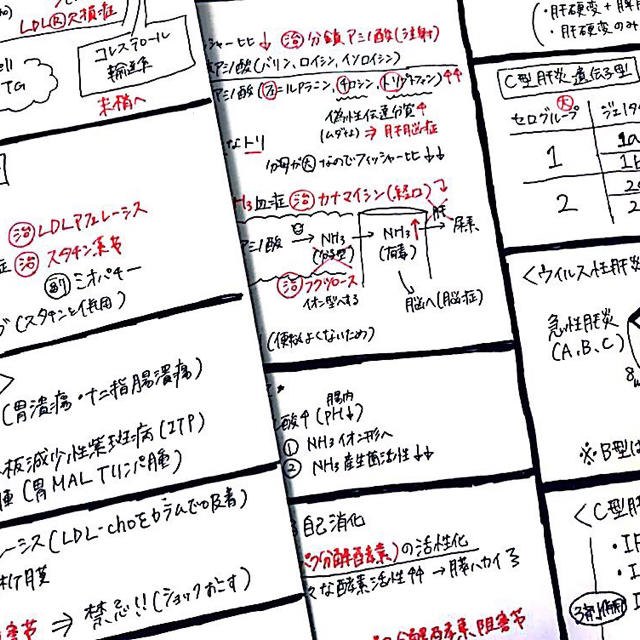 LDL®欠損症
コレステロール
輸送率
TG
末梢へ
治 LDLアフェレーシス
治 スタチン系薬
副 ミオパチー
(スタチンと併用)
(胃潰瘍・十二指腸潰瘍)
板減少性紫斑病(ITP)
(胃MALTリンパ腫)
ーシス(LDL-choをカラムで吸着)
⇒ 禁忌!!(ショックおこす)
↓ 治 分鎖アミノ酸(注射)
アミノ酸(バリン、ロイシン、イソロイシン)
アミノ酸(フェニルアラニン、チロシン、トリプトファン)↑↑
偽性伝達分質↑
⇒ 肝脳症
トリ
分母が大なのでフィッシャー比↓↓
血症 治 カナマイシン(経口)
アミノ酸 → NH₃ → NH₃↑ → 尿素
肝
(分子型)
(有毒)
治 ラクツロース
イオン型へする
脳へ(脳症)
(便秘よくないため)
腸内
酸↑(PH↓)
① NH₃イオン形へ
② NH₃産生菌活性↓↓
自己消化
分解酵素)の活性化
な酵素活性↑↑ → 膵ハカイ
分解酵素阻害薬
・肝硬変+
・肝硬変のみ
C型肝炎 遺伝子型
セログループ 大
1 1a
2
<ウイルス性肝炎
急性肝炎
(A、B、C)
※B型は
<C型肝
・IF
3剤併用